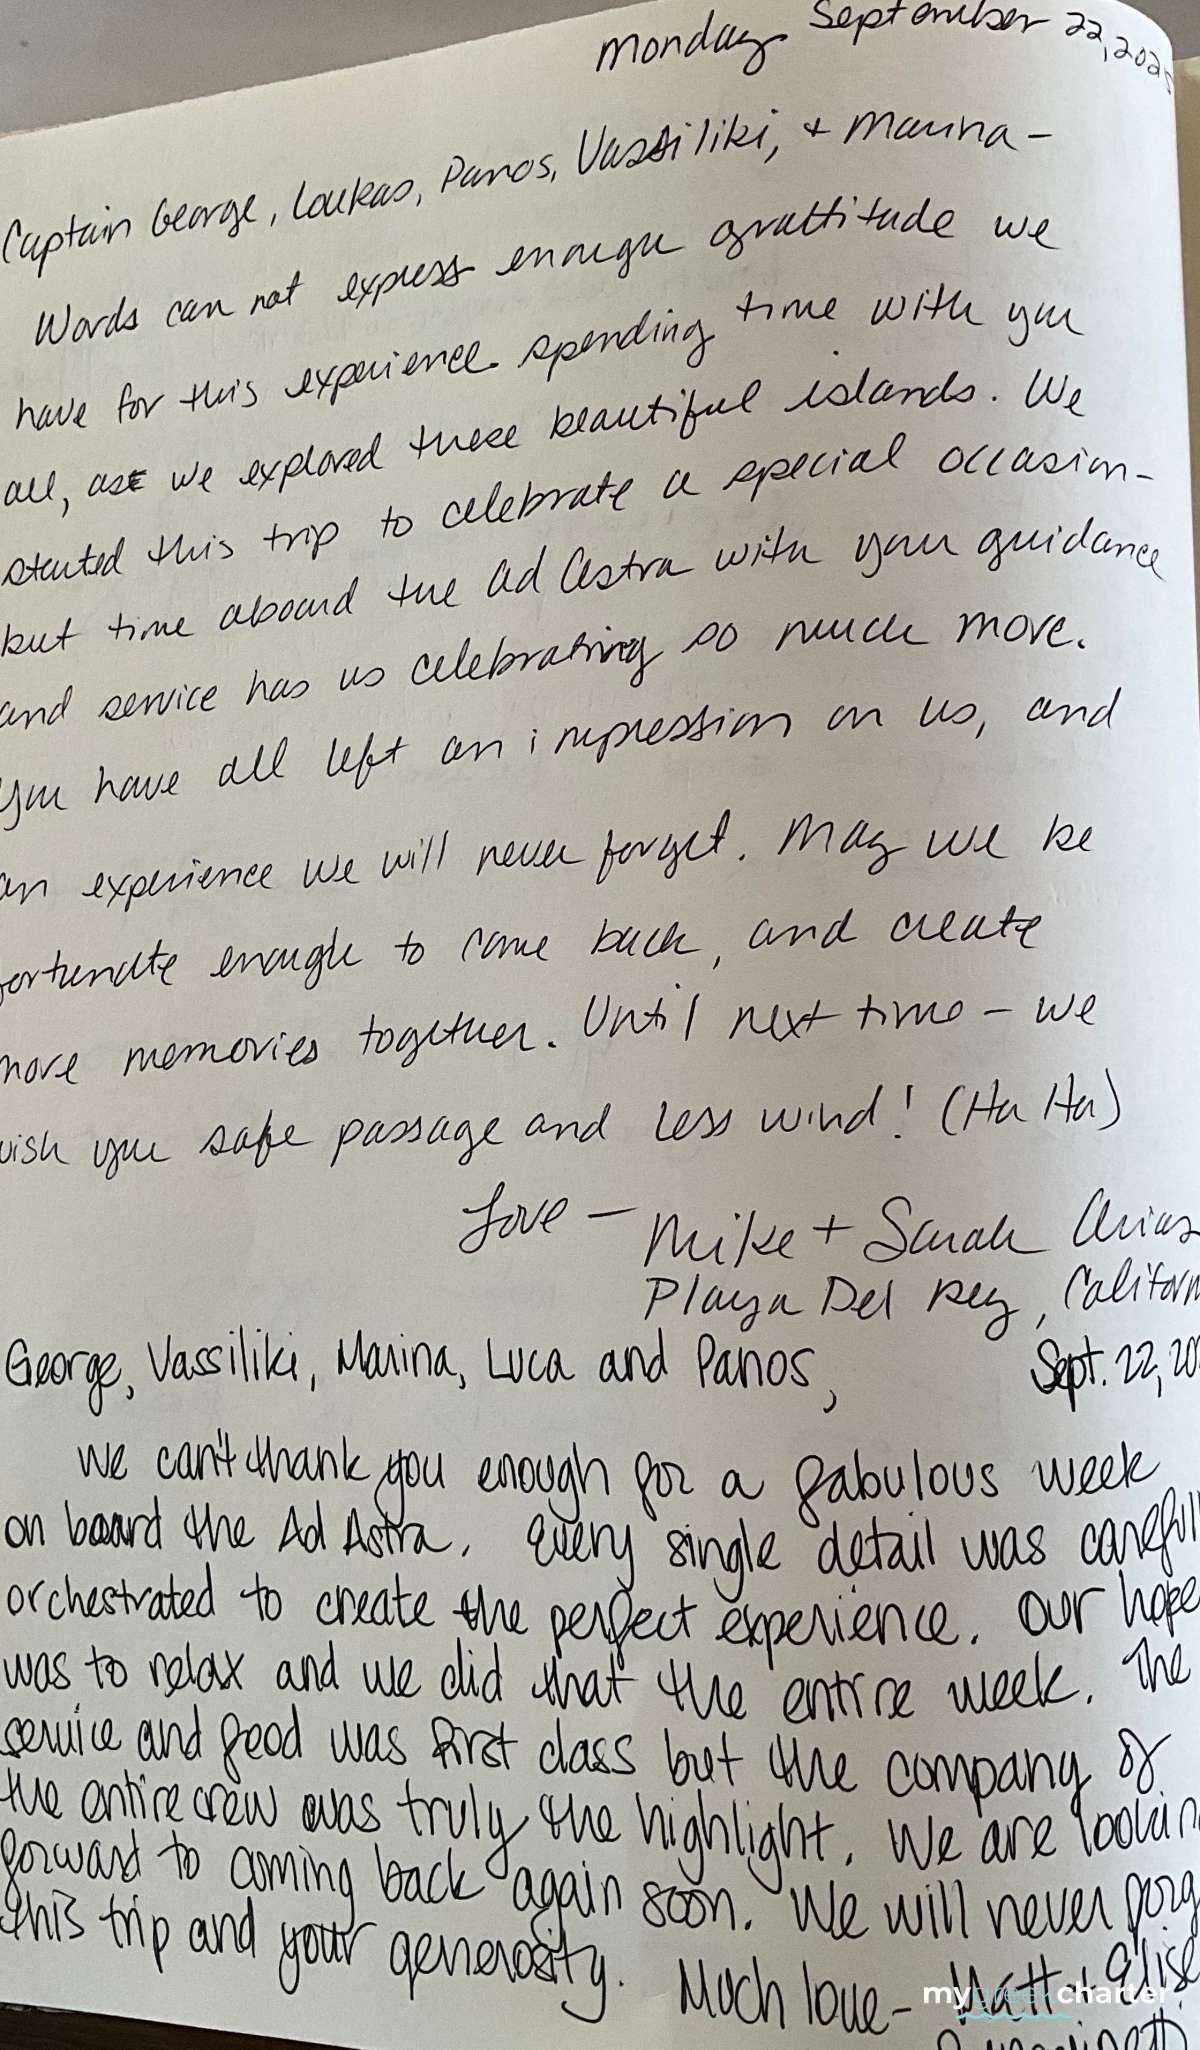 Monday September 22, 2025
Captain George, Loukas, Panos, Vassiliki, + Marina -
Words can not express enough grattitude we
have for this experience spending time with you
all, as we explored these beautiful islands. We
started this trip to celebrate a special occasion -
but time aboard the Ad Astra with your guidance
and service has us celebrating so much more.
You have all left an impression on us, and
an experience we will never forget. May we be
fortunate enough to come back, and create
more memories together. Until next time - we
wish you safe passage and less wind! (Ha Ha)
Love - Mike + Sarah Arias
Playa Del Rey, Californ
George, Vassiliki, Marina, Luca and Panos, Sept. 22, 20
We can't thank you enough for a fabulous week
on board the Ad Astra. Every single detail was carefull
orchestrated to create the perfect experience. Our hope
was to relax and we did that the entire week. The
service and food was first class but the company of
the entire crew was truly the highlight. We are lookin
forward to coming back again soon. We will never forg
this trip and your generosity. Much love - Matt + Elise
mygreekcharter